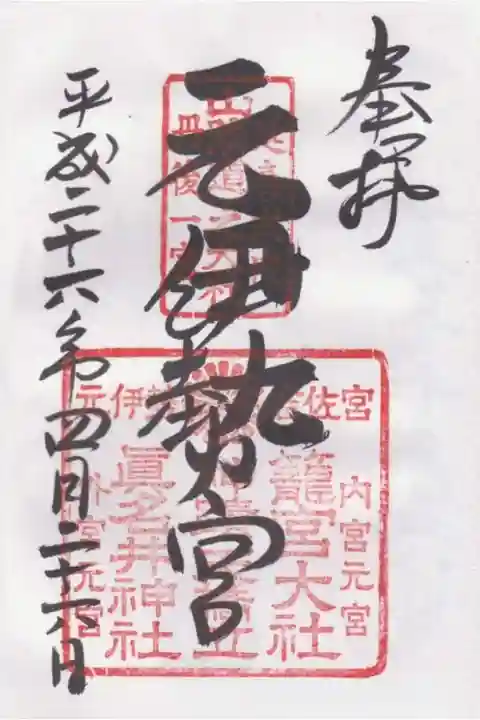 奉拝
元伊勢宮
平成二十六年四月二十六日
丹後一宮
元伊勢 吉佐宮
内宮元宮
籠宮大社
眞名井神社
外宮元宮